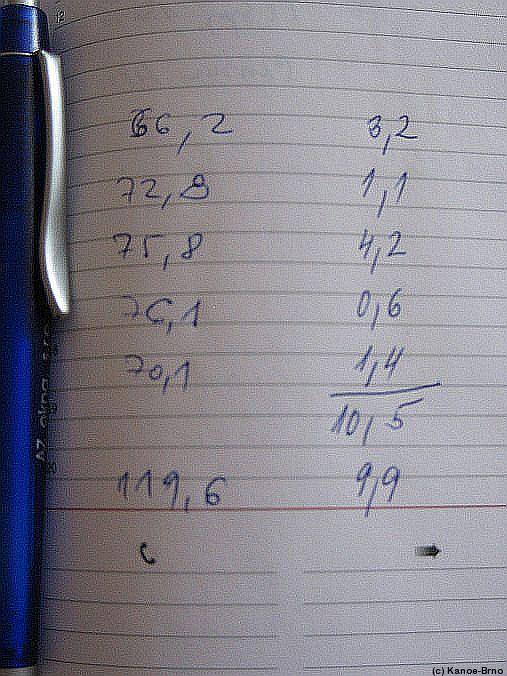 66,2 3,2
72,8 1,1
75,8 4,2
76,1 0,6
70,1 1,4
10,5
119,6 9,9
(c) Kanoe-Brno